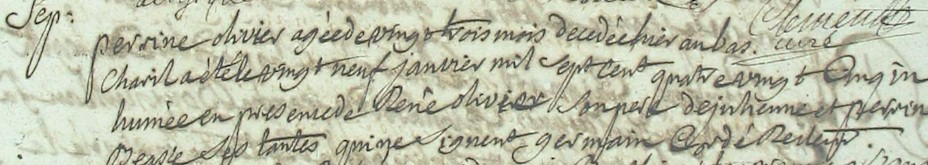 Sep:
perrine olivier agée de vingt trois mois decedée hier au bas curé
Charil a été le vingt neuf janvier mil sept cent quatre vingt Cinq in
humée en presence de Renè olivier son pere de julienne et perrine
ses tantes qui ne signent germain